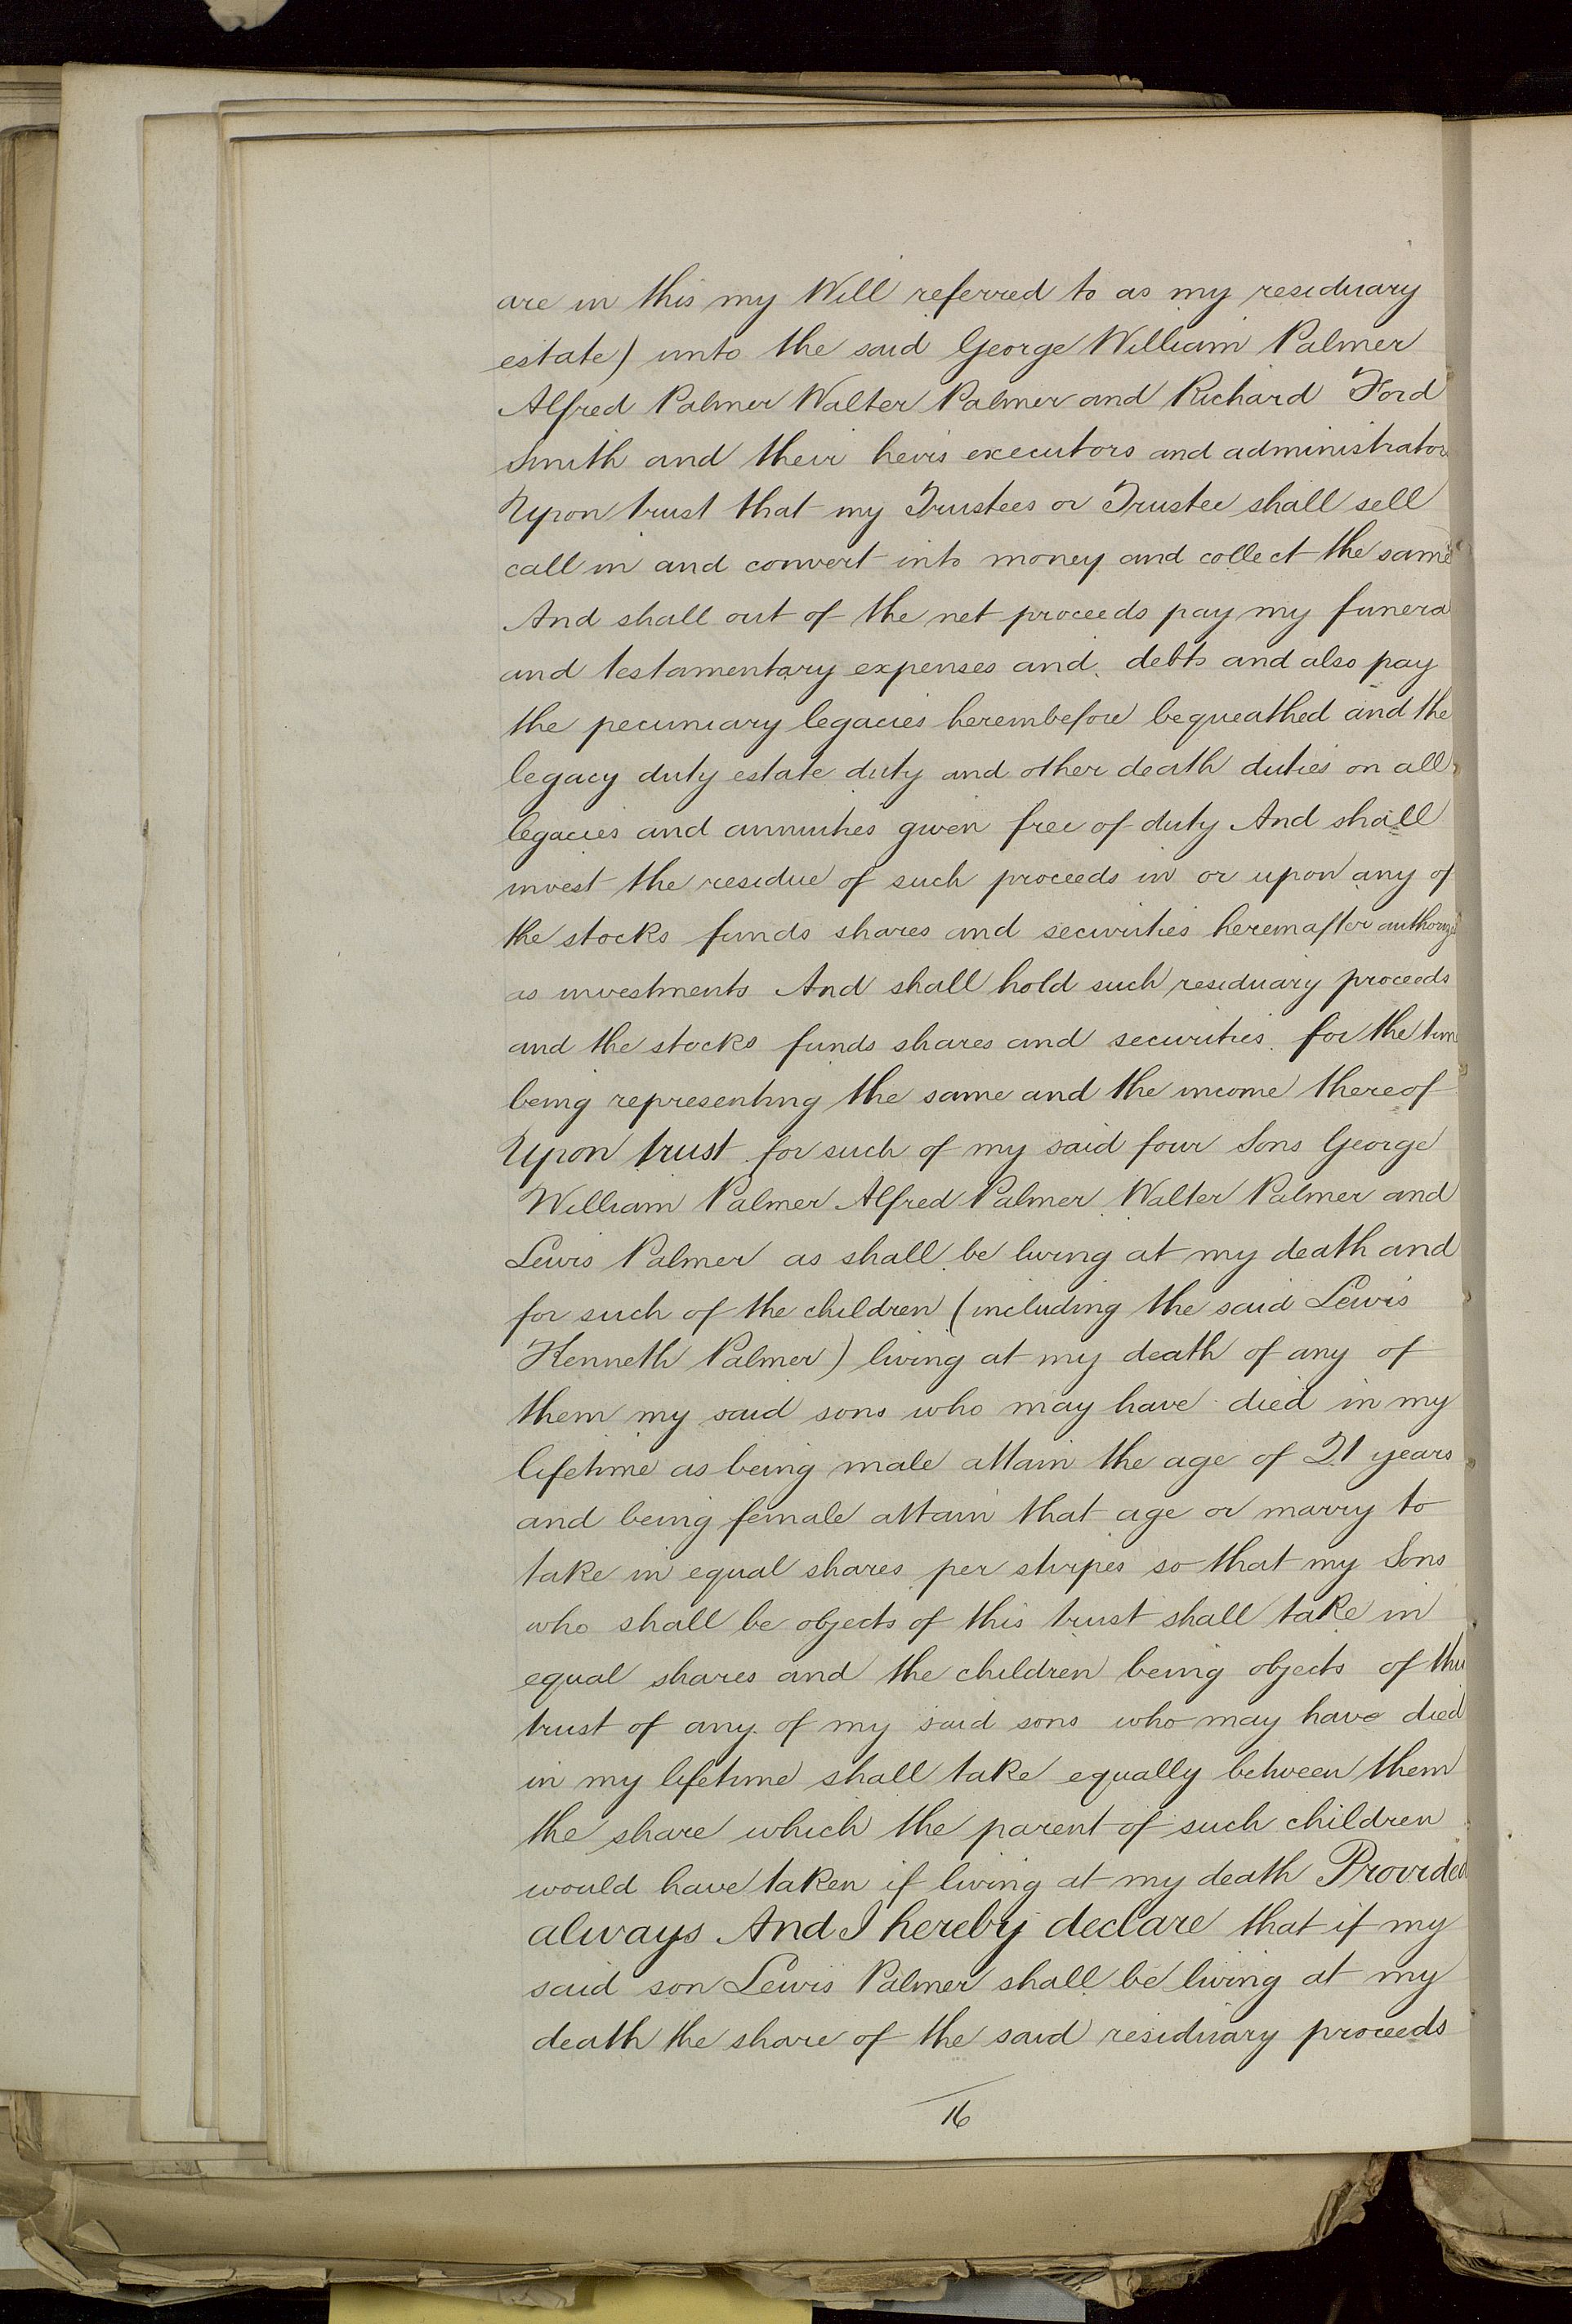 are in this my Will referred to as my residuary
estate) unto the said George William Palmer
Alfred Palmer Walter Palmer and Richard Ford
Smith and their heirs executors and administrators
Upon trust that my Trustees or Trustee shall sell
call in and convert into money and collect the same
And shall out of the net proceeds pay my funeral
and testamentary expenses and debts and also pay
the pecuniary legacies hereinbefore bequeathed and the
legacy duty estate duty and other death duties on all
legacies and annuities given free of duty And shall
invest the residue of such proceeds in or upon any of
the stocks funds shares and securities hereinafter authorized
as investments And shall hold such residuary proceeds
and the stocks funds shares and securities for the time
being representing the same and the income thereof
Upon trust for such of my said four Sons George
William Palmer Alfred Palmer Walter Palmer and
Lewis Palmer as shall be living at my death and
for such of the children (including the said Lewis
Kenneth Palmer) living at my death of any of
them my said sons who may have died in my
lifetime as being male attain the age of 21 years
and being female attain that age or marry to
take in equal shares per stirpes so that my Sons
who shall be objects of this trust shall take in
equal shares and the children being objects of this
trust of any of my said sons who may have died
in my lifetime shall take equally between them
the share which the parent of such children
would have taken if living at my death Provided
always And I hereby declare that if my
said son Lewis Palmer shall be living at my
death the share of the said residuary proceeds
16